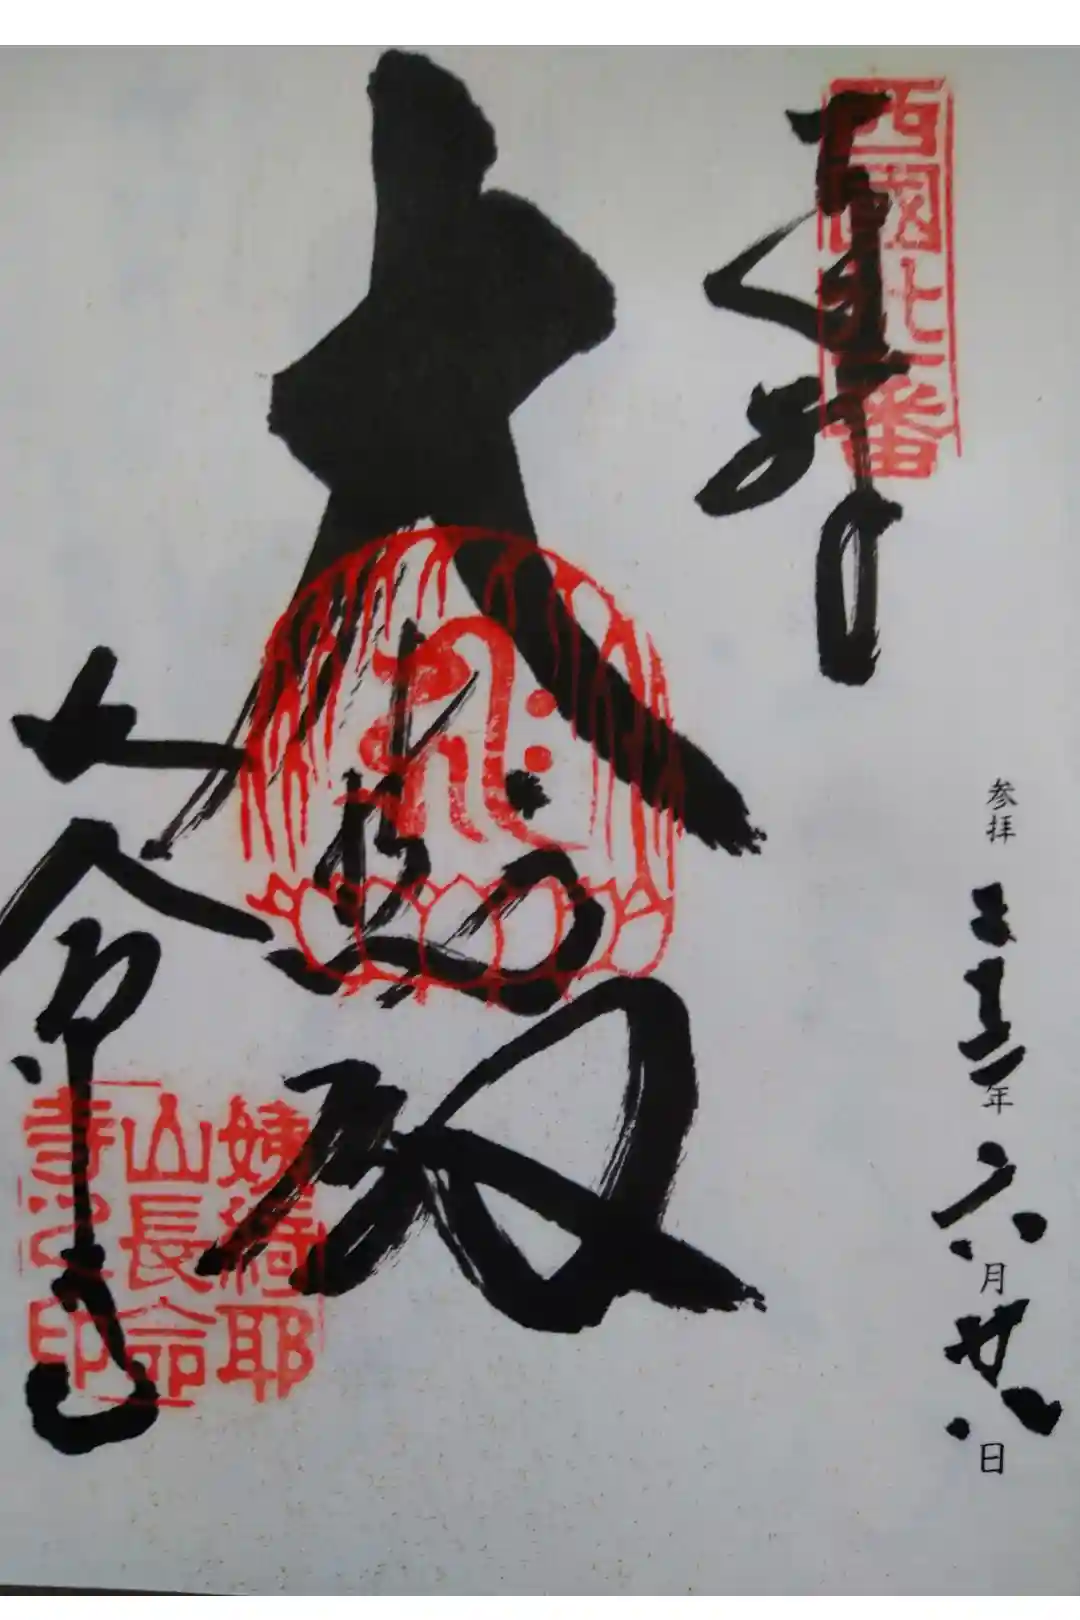 奉拝
西國卅一番
参拝
年六月廿八日
大悲殿
長命寺
姨綺耶
山長命
寺之印